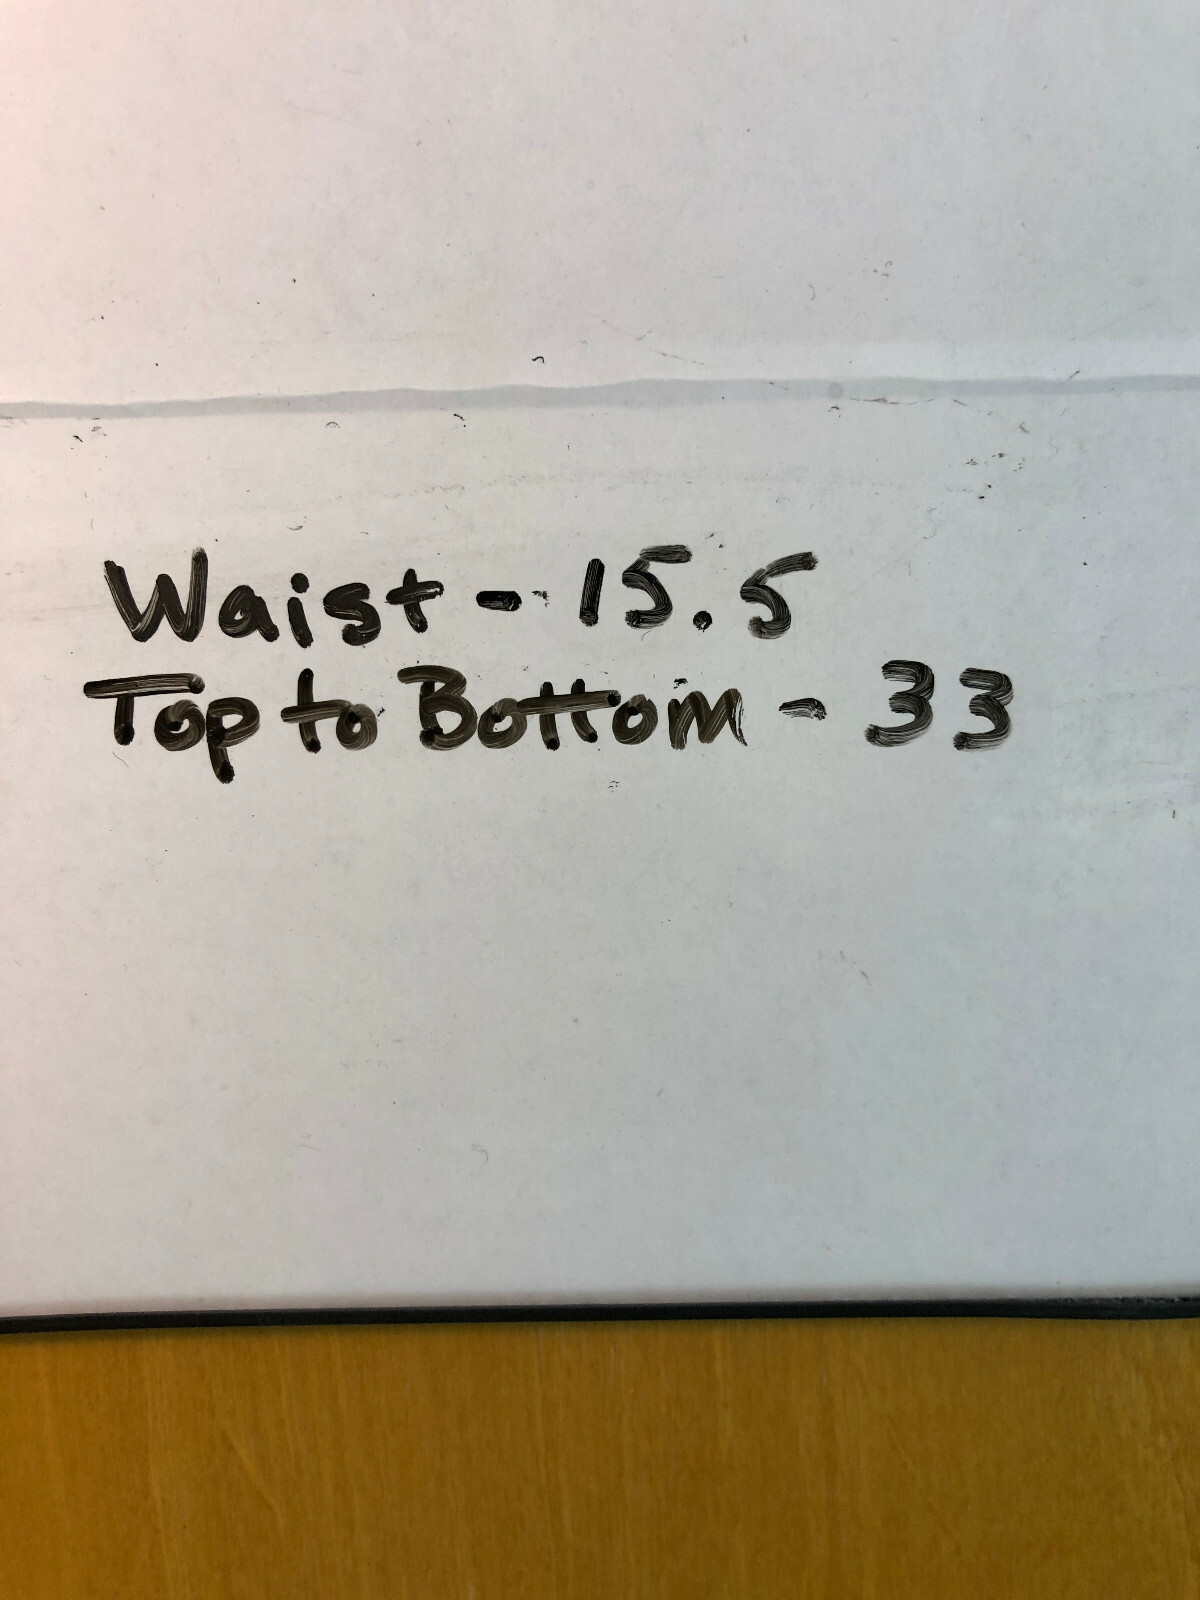 Waist - 15.5
Top to Bottom - 33